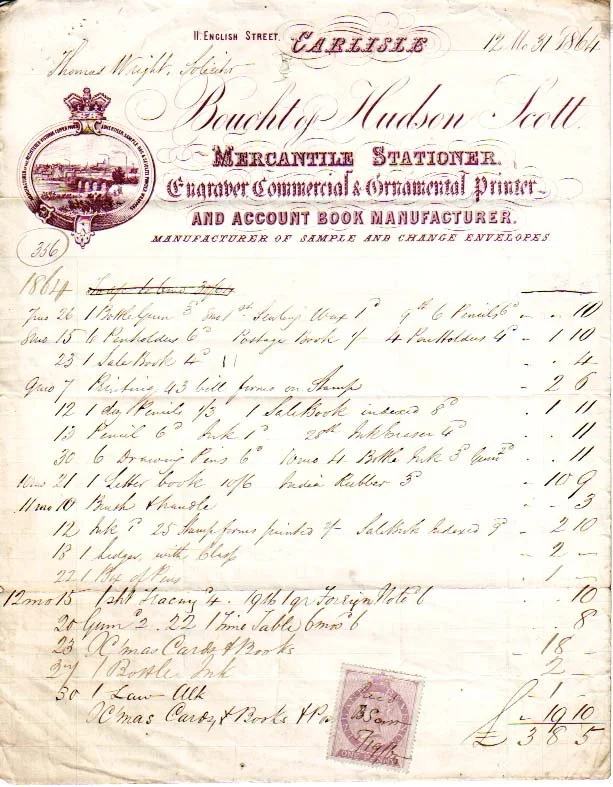 11. ENGLISH STREET, CARLISLE 12 Mo 31 1864
Thomas Wright, Solicitor
Bought of Hudson Scott.
MERCANTILE STATIONER.
Engraver, Commercial & Ornamental Printer
AND ACCOUNT BOOK MANUFACTURER.
MANUFACTURER OF SAMPLE AND CHANGE ENVELOPES
356
1864
7mo 26 1 Bottle Gum 3d Sealing Wax 1d 9th 6 Pencils 6d - - 10
8mo 15 6 Penholders 6d Postage Book 1/ 4 Penholders 4d - 1 10
23 1 Sale Book 4d - 4
9mo 7 Printing 43 bill forms on Stamp - 2 6
12 1 doz Pencils 1/3 1 Sale Book indexed 8d - 1 11
13 Pencil 6d Ink 1d 28th Ink Eraser 4d - 11
30 6 Drawing Pins 6d 10mo 4 Bottle Ink 3d - 11
10mo 21 1 Letter book 10/6 India Rubber 3d - 10 9
11mo 10 Brush & handle - 3
12 Ink 25 Stamp forms printed 1/ Sale Book Indexed 9d - 2 10
18 1 Ledger with Clasp - 2 -
22 1 Box of Pens - 1 -
12mo 15 1 sht Tracing 4 19th 1 qr Foreign Note 6 - 10
20 Gum 2. 22 1 Time Table 6 - 8
23 X'mas Cards & Books - 18 -
27 1 Bottle Ink - 2 -
30 1 Law Alk - 1 -
X'mas Cards, & Books & - 19 10
£ 3 8 5
ONE PENNY